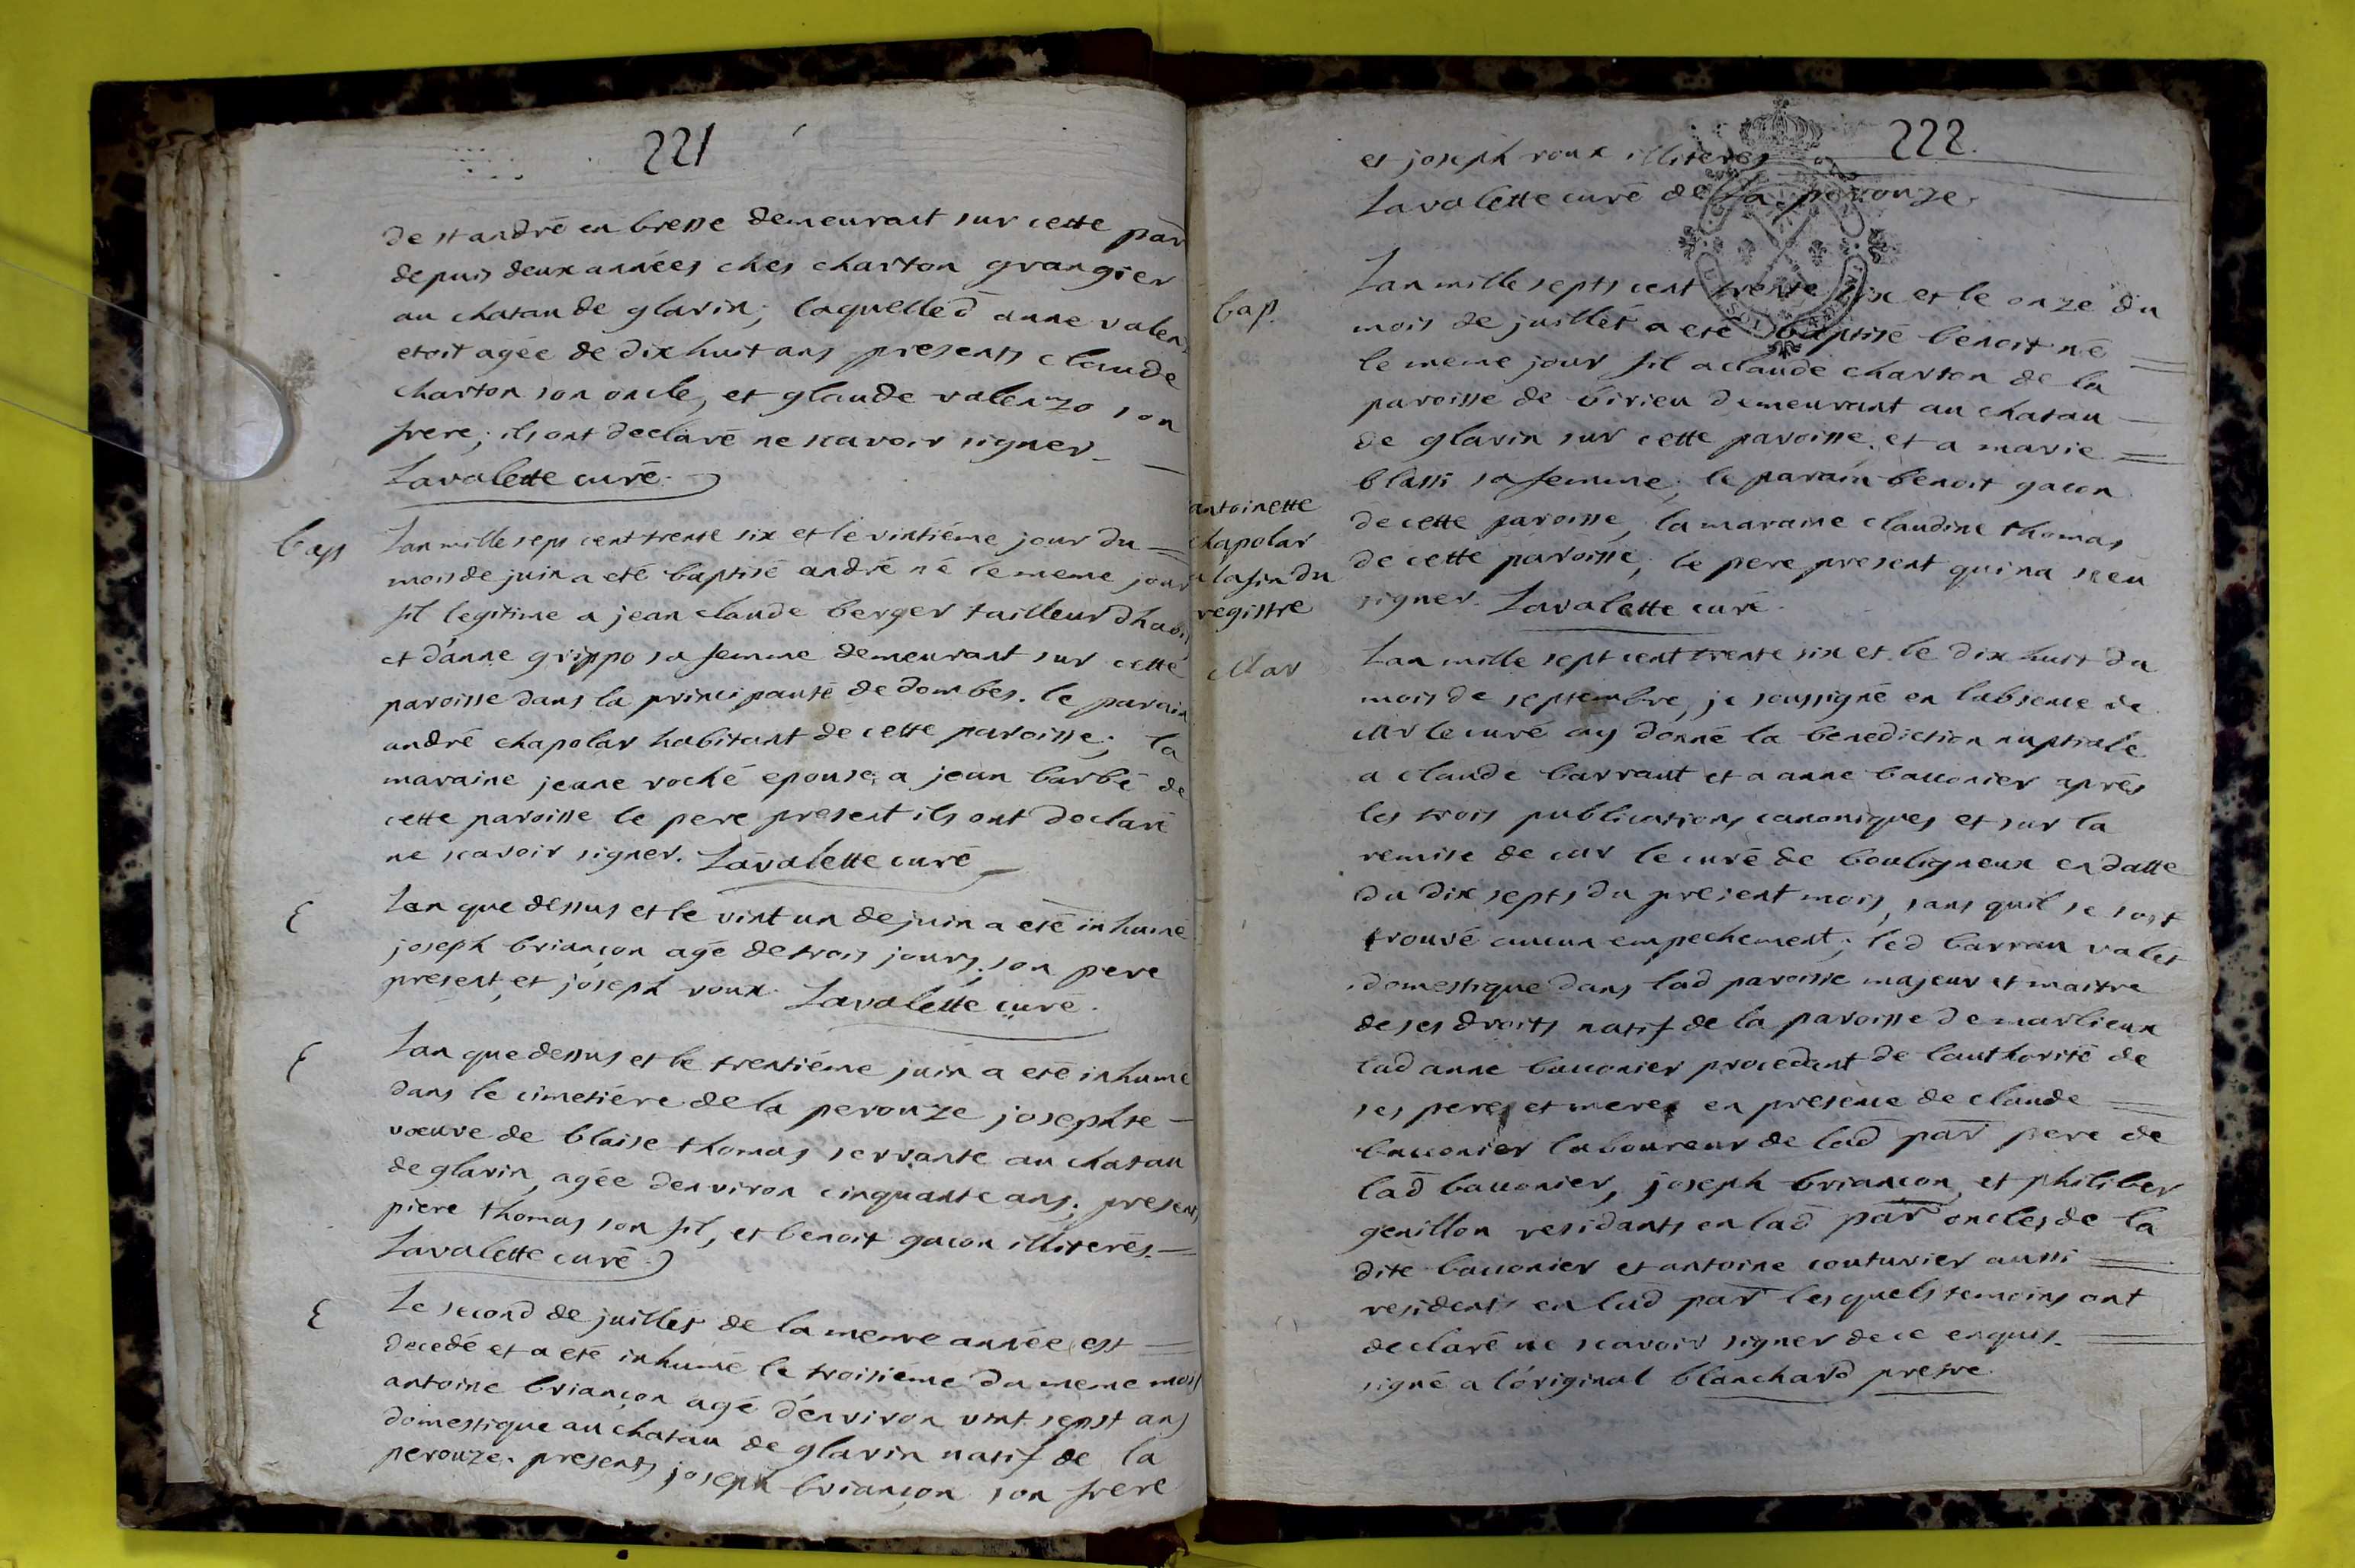 221
de st andré en bresse demeurant sur cette par
depuis deux années ches charton grangier
au chatau de glavin; laquelle d anne valen
etoit agée de dix huit ans presents claude
charton son oncle, et glaude valenzo son
frere; ils ont declaré ne scavoir signer.
Lavalette curé.
bap
Lan mille sept cent trente six et le vintiéme jour du
mois de juin a eté baptisé andré né le meme jour
fil legitime a jean claude berger tailleur dhabi
et danne grippo sa femme demeurant sur cette
paroisse dans la principauté de dombes. le parain
andré chapolar habitant de cette paroisse; la
maraine jeane roché epouse a jean barbé de
cette paroisse le pere present ils ont declaré
ne scavoir signer. Lavalette curé
E
Lan que dessus et le vint un de juin a eté inhumé
joseph briançon agé de trois jours; son pere
present, et joseph roux. Lavalette curé.
E
Lan que dessus et le trentiéme juin a eté inhumé
dans le cimetiére de la perouze josephte
vœuve de blaise thomas servante au chatau
de glavin, agée denviron cinquante ans; presents
piere thomas son fil, et benoit gacon illiterés.
Lavalette curé
E
Le second de juillet de la meme année est
decedé et a eté inhumé le troisiéme du meme mois
antoine briançon agé d'environ vint sept ans
domestique au chatau de glavin natif de la
perouze. presents joseph briançon son frere
222
et joseph roux illiterés
Lavalette curé de la perouze
bap.
Lan mille septs cent trente six et le onze du
mois de juillet a eté baptisé benoit né
le meme jour fil a claude charton de la
paroisse de birieu demeurant au chatau
de glavin sur cette paroisse. et a marie
blassi sa femme; le parain benoit gacon
de cette paroisse, la maraine claudine thomas
de cette paroisse; le pere present qui na sceu
signer. Lavalette curé.
antoinette
chapolar
a la fin du
registre
Mar
Lan mille sept cent trente six et le dix huit du
mois de septembre, je soussigné en labsence de
Mr le curé ay donné la benediction nuptiale
a claude barraut et a anne bauonier aprés
les trois publications canoniques et sur la
remise de mr le curé de bouligneux en datte
du dix septs du present mois, sans quil se soit
trouvé aucun empechement; led barrau valet
domestique dans lad paroisse majeur et maitre
de ses droits natif de la paroisse de marlieux
lad anne bauonier procedant de lauthorité de
ses peres et meres en presence de claude
bauonier laboureur de lad par pere de
lad bauonier, joseph briancon, et philiber
genillon residants en lad par oncles de la
dite bauonier et antoine couturier aussi
resident en lad par lesquels temoins ont
declaré ne scavoir signer de ce enquis.
signé a l'original blanchard prestre